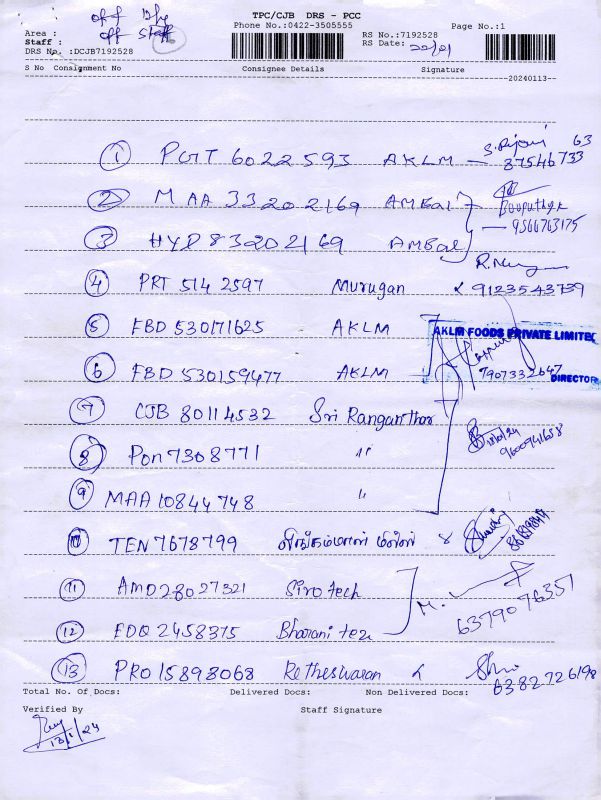 TPC/CJB DRS - PCC
Phone No.:0422-3505555
Page No.:1
Area :
off staff
Staff :
DRS No. :DCJB7192528
RS No.:7192528
RS Date:
S No Consignment No Consignee Details Signature
20240113
1 6022593 AKLM 87546733 63
2 MAA 33202169 AMBal
9566763175
3 HYD 83202169 AMBal
4 PRT 5142597 Murugan 9123543739
5 FBD 530171625 AKLM
AKLM FOODS PRIVATE LIMITED
6 FBD 530159477 AKLM 7907332647
DIRECTOR
7 CJB 80114532 Sri Ranganthar
8 Pon 7308771 "
9600941658
9 MAA 10844748 "
10 TEN 7678799
11 AMD 28027321 Sirotech
6379076357
12 EDQ 2458375 Bharani tex
13 PRO 15898068 Retheswaran
6382726198
Total No. Of Docs: Delivered Docs: Non Delivered Docs:
Verified By Staff Signature
13/1/24